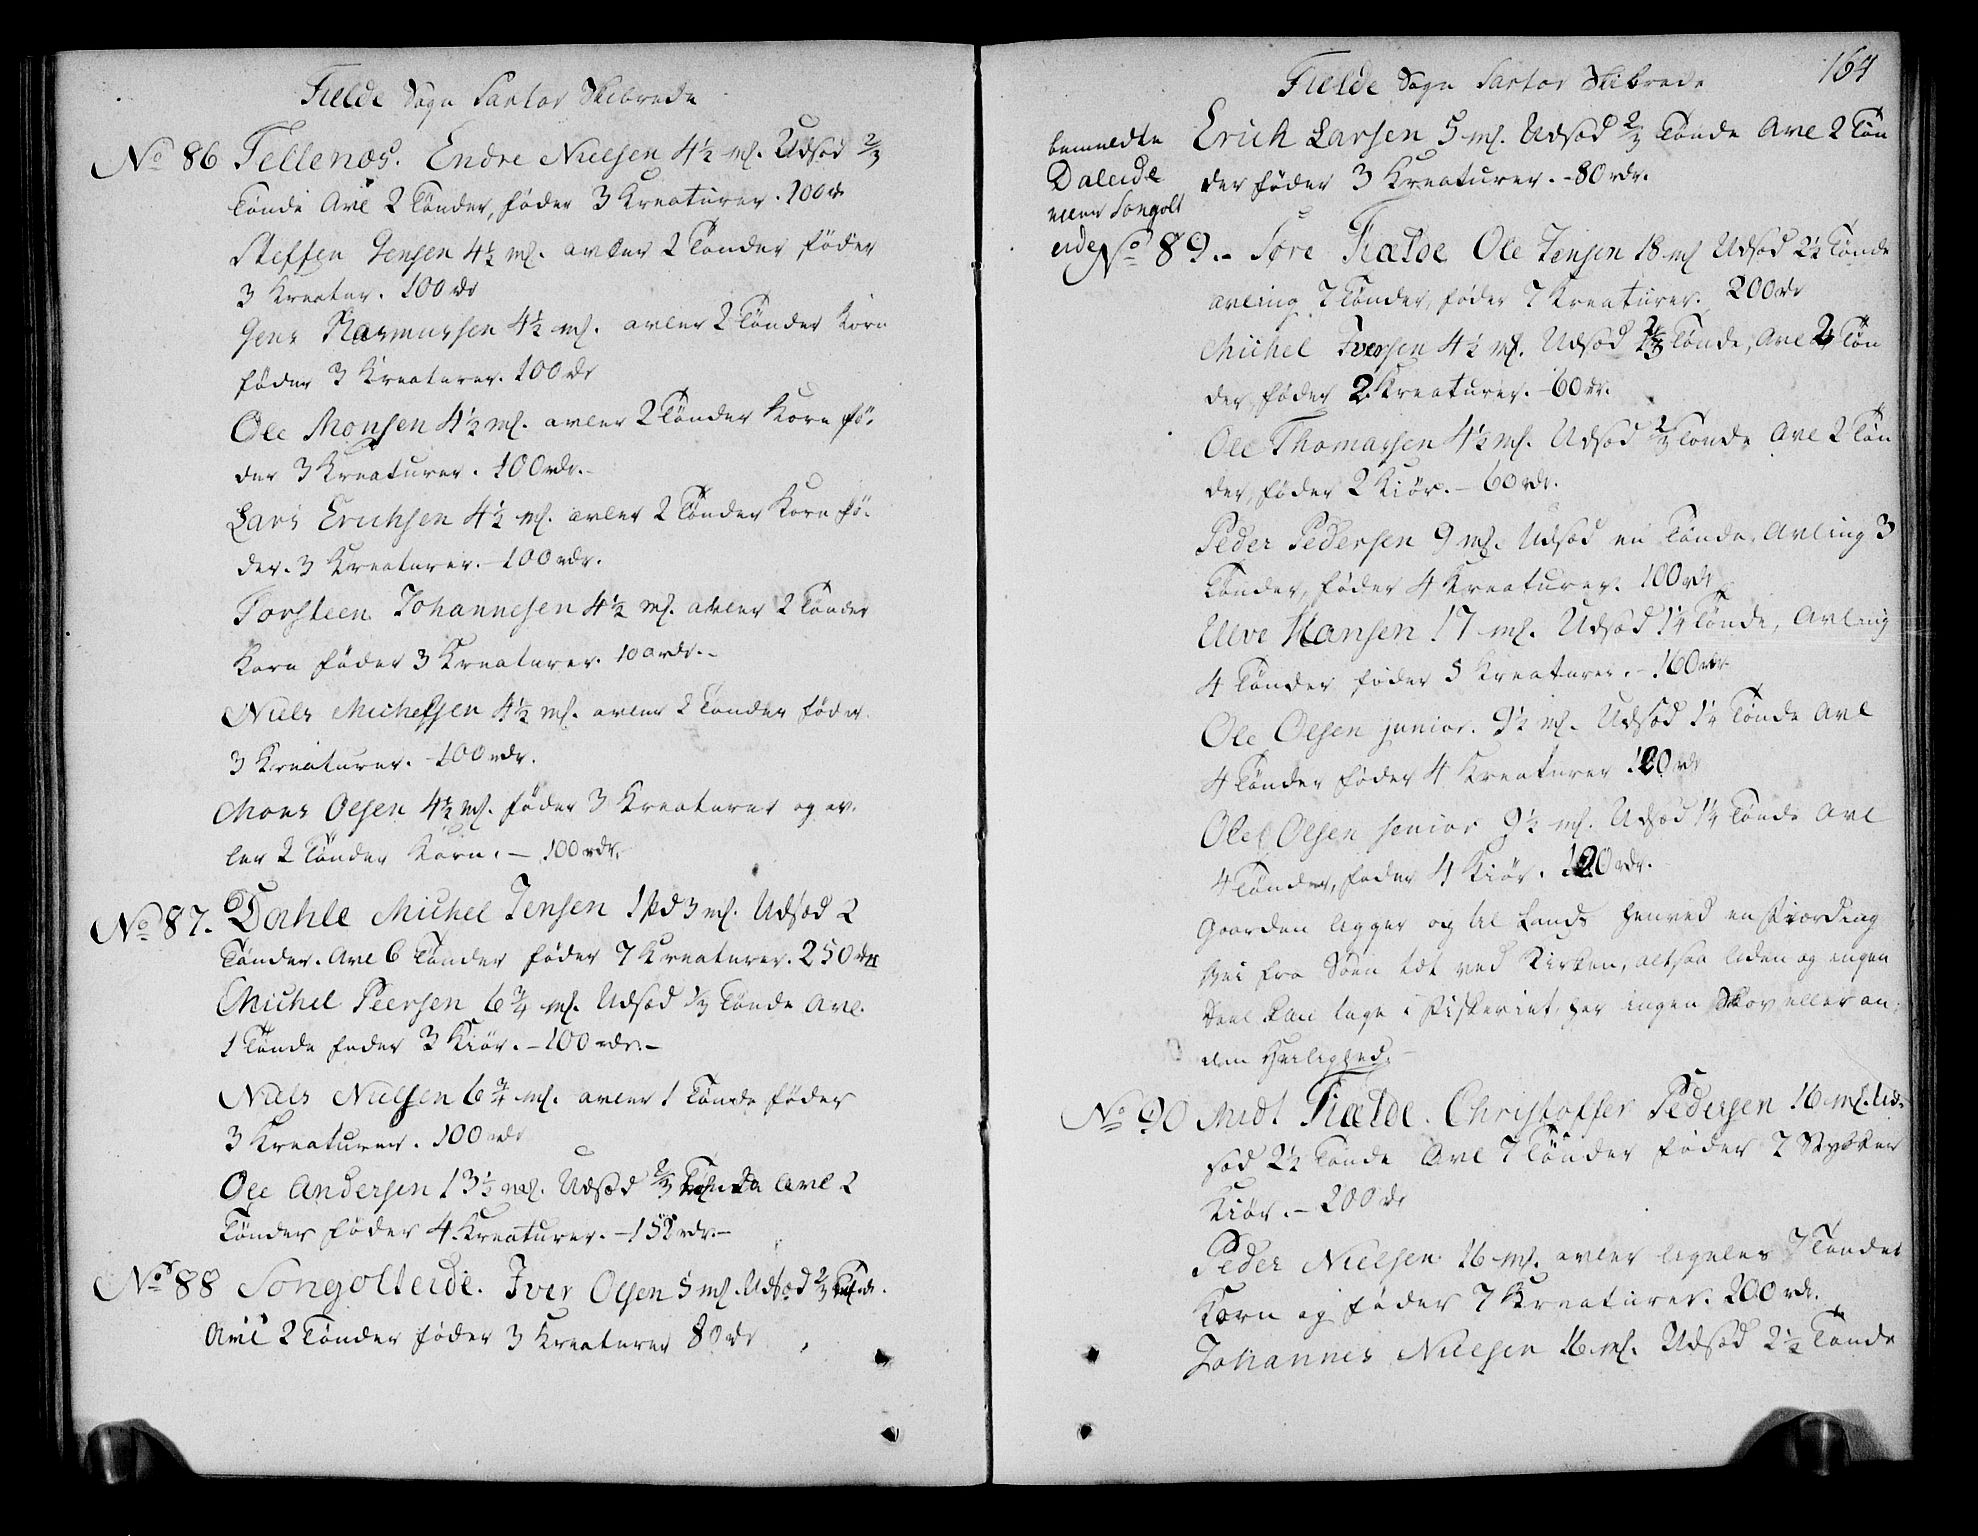 Fielde Sogn Sartor Skibrede
No 86 Tellenæs. Endre Nielsen 4½ mf. Udsæd ⅔
Tønde Avl 2 Tønder, føder 3 Kreaturer. 100 rdr
Steffen Jensen 4½ mf. avler 2 Tønder føder
3 Kreatur. 100 rdr
Jens Rasmussen 4½ mf. avler 2 Tønder Korn
føder 3 Kreaturer. 100 rdr
Ole Monsen 4½ mf. avler 2 Tønder Korn fø-
der 3 Kreaturer. 100 rdr.
Lars Erichsen 4½ mf. avler 2 Tønder Korn fø-
der. 3 Kreaturer. 100 rdr.
Torsteen Johannesen 4½ mf. avler 2 Tønder
Korn føder 3 Kreaturer. 100 rdr.-
Niels Michelsen 4½ mf. avler 2 Tønder føder
3 Kreaturer. 100 rdr.
Mons Olsen 4½ mf. føder 3 Kreaturer og av-
ler 2 Tønder Korn. - 100 rdr.
No 87. Dahle Michel Jensen 1 pd 3 mf. Udsæd 2
Tønder. Avl 6 Tønder føder 7 Kreaturer. 250 rdr
Michel Peersen 6¾ mf. Udsæd ⅓ Tønde Avl.
1 Tønde føder 3 Kiör. - 100 rdr.-
Niels Nielsen 6¾ mf. avler 1 Tønde føder
3 Kreaturer. 100 rdr
Ole Andersen 13½ mf. Udsæd ⅔ Tønde Avl 2
Tønder føder 4 Kreaturer. - 150 rdr.-
No 88 Songolteide. Iver Olsen 5 mf. Udsæd ⅔ Tønde.
Avl 2 Tønder føder 3 Kreaturer 80 rdr
Fielde Sogn Sartor Skibrede
164
bemeldte
Daleide
eller Songolt
eide
Erich Larsen 5 mf. Udsæd ⅔ Tønde Avl 2 Tøn
der føder 3 Kreaturer. - 80 rdr.
No 89.- Søre Fiælde Ole Jensen 18 mf Udsæd 2½ Tønde
avling 7 Tønder, føder 7 Kreaturer. 200 rdr
Michel Iversen 4½ mf. Udsæd ⅔ Tønde, Avl 2 Tøn
der, føder 2 Kreaturer. - 60 rdr.
Ole Thomassen 4½ mf. Udsæd ⅔ Tønde Avl 2 Tøn
der, føder 2 Kiör. - 60 rdr.
Peder Pedersen 9 mf. Udsæd en Tønde, Avling 3
Tønder, føder 4 Kreaturer. 100 rdr
Elleve Hansen 17 mf. Udsæd 1¼ Tønde, Avling
4 Tønder føder 5 Kreaturer. - 160 rdr
Ole Olsen junior. 9½ mf. Udsæd 1¼ Tønde Avl
4 Tønder føder 4 Kreaturer 120 rdr
Ole Olsen senior 9½ mf. Udsæd 1¼ Tønde Avl
4 Tønder, føder 4 Kiör. 120 rdr.
Gaarden ligger og til Lands henved en Fiærding
Vei fra Søen tæt ved Kirken, altsaa liden og ingen
Deel kan tage i Fiskeriet, har ingen Skov eller an-
den Herlighed.-
No 90 Midt Fiælde. Christoffer Pedersen 16 mf. Ud-
sæd 2½ Tønde Avl 7 Tønder føder 7 Stykker
Kiör. - 200 rdr
Peder Nielsen. 16 mf. avler ligeler 7 Tønder
Korn og føder 7 Kreaturer. 200 rdr.
Johannes Nielsen 16 mf. Udsæd 2½ Tønde